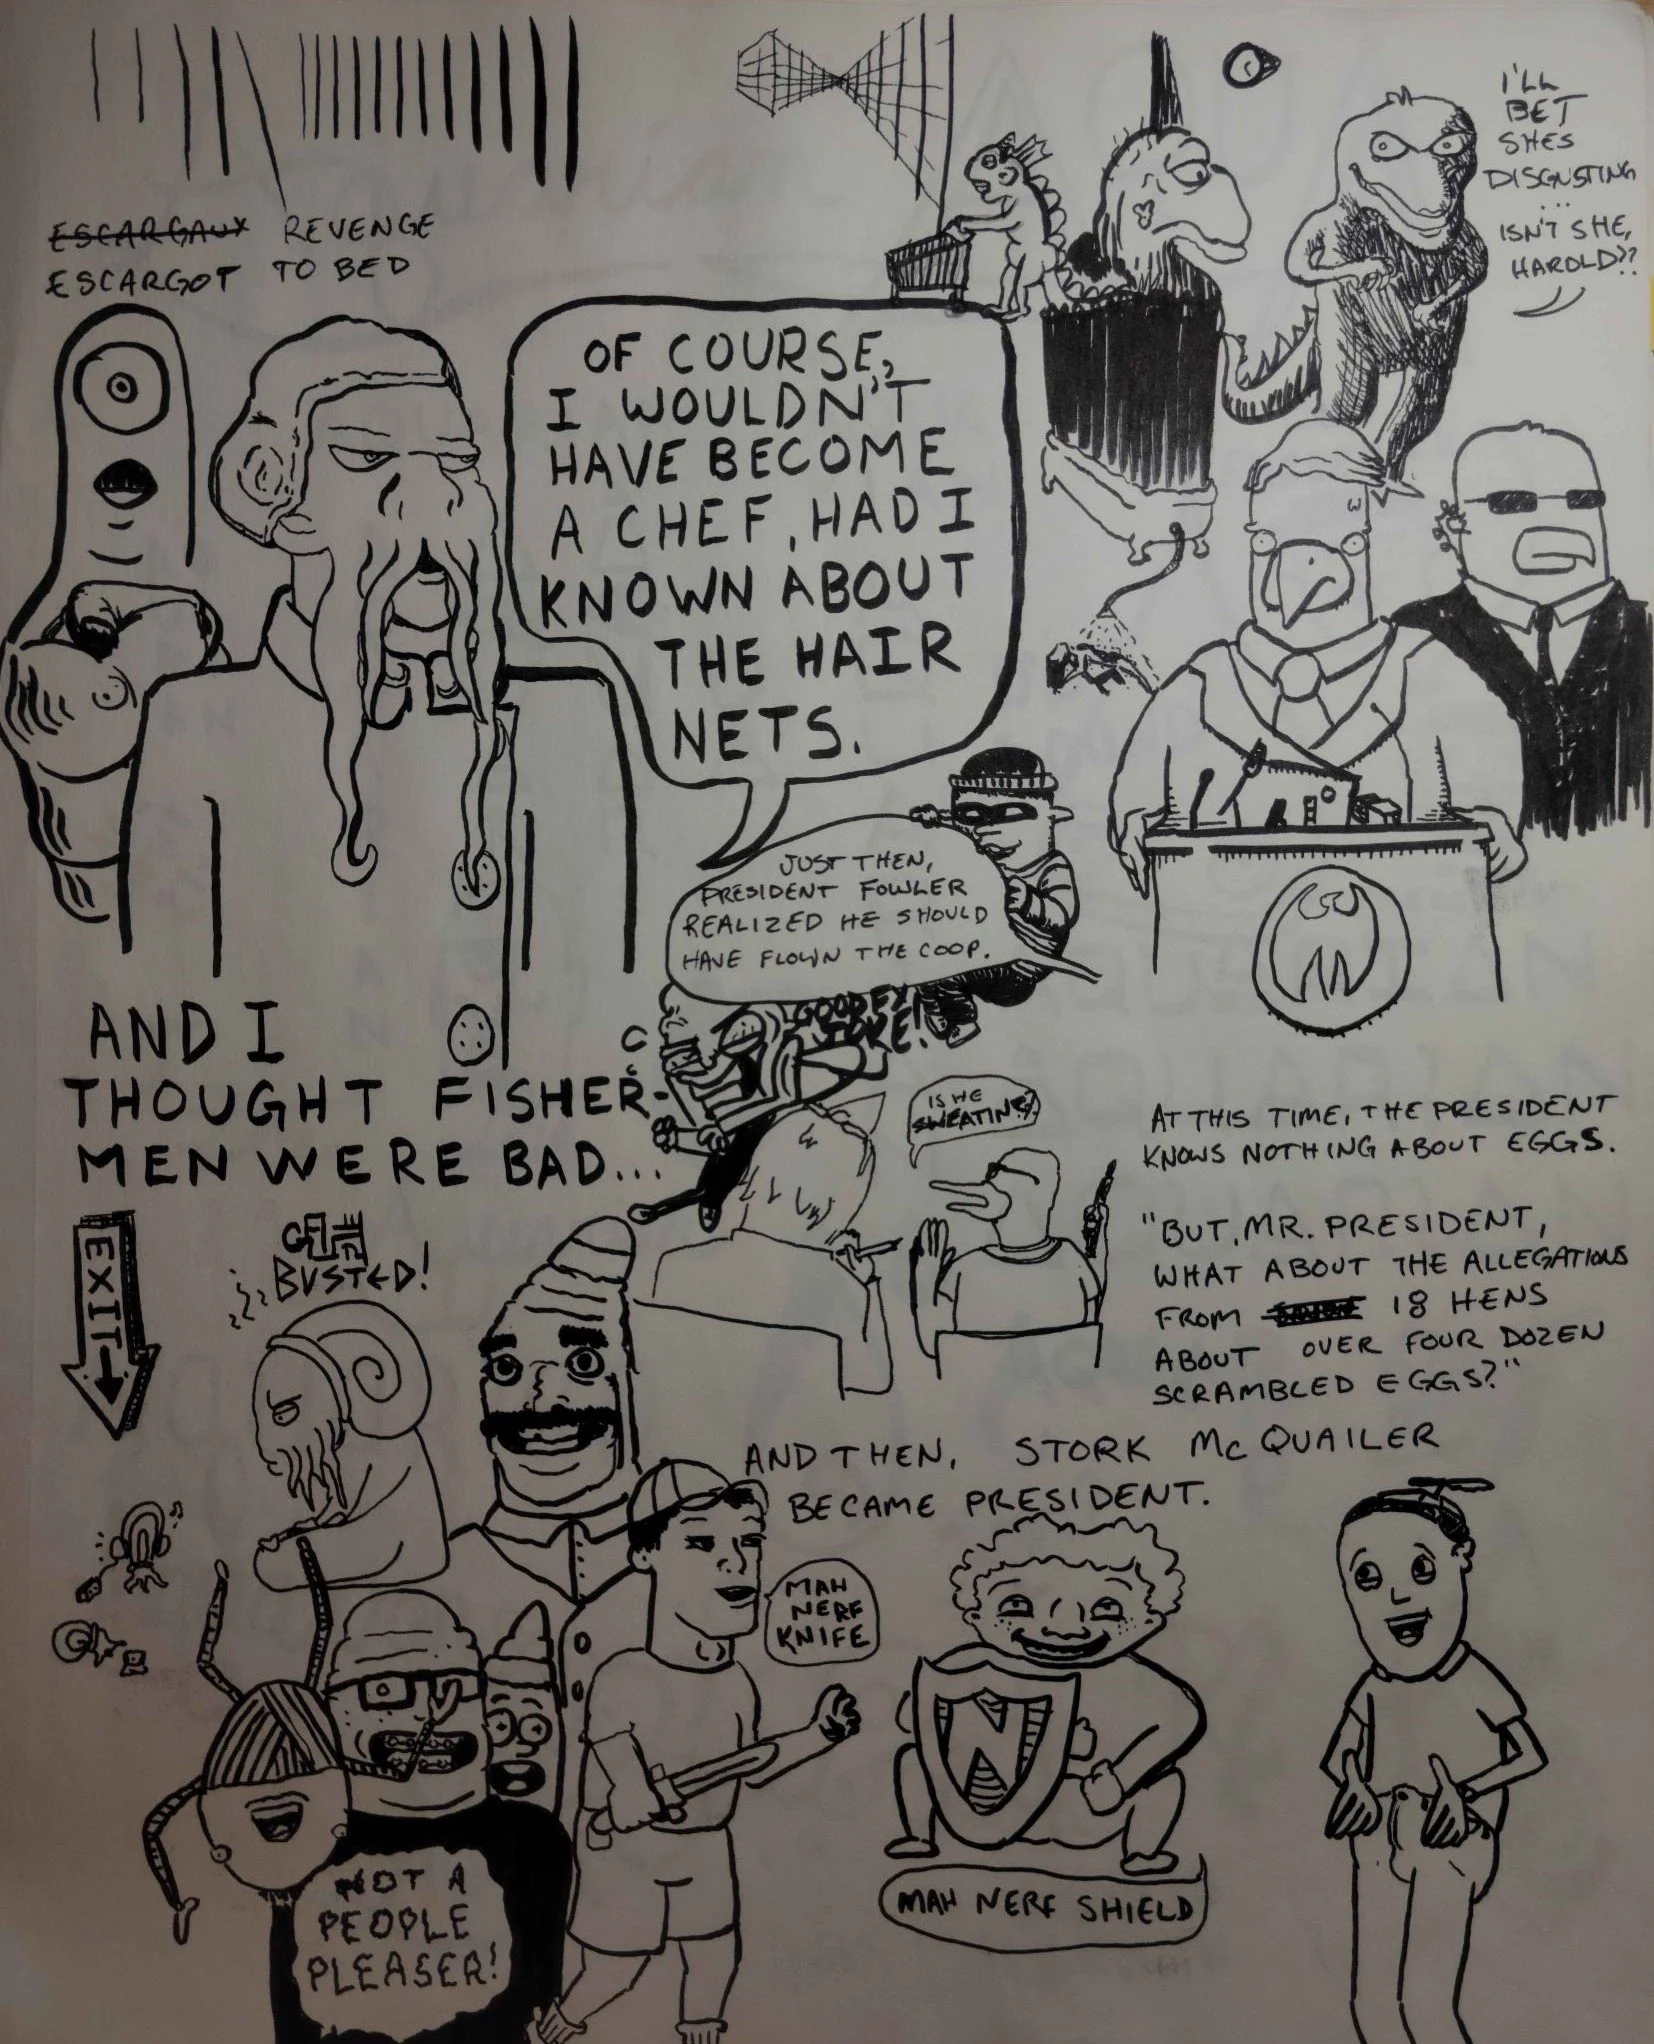 ESCARGAUX REVENGE
ESCARGOT TO BED
I'LL
BET
SHES
DISGUSTING
...
ISN'T SHE,
HAROLD??
OF COURSE,
I WOULDN'T
HAVE BECOME
A CHEF, HAD I
KNOWN ABOUT
THE HAIR
NETS.
JUST THEN,
PRESIDENT FOWLER
REALIZED HE SHOULD
HAVE FLOWN THE COOP.
JOKE!
AND I
THOUGHT FISHER-
MEN WERE BAD...
IS HE
SWEATING?
AT THIS TIME, THE PRESIDENT
KNOWS NOTHING ABOUT EGGS.
"BUT, MR. PRESIDENT,
WHAT ABOUT THE ALLEGATIONS
FROM 18 HENS
ABOUT OVER FOUR DOZEN
SCRAMBLED EGGS?"
EXIT
BUSTED!
AND THEN, STORK McQUAILER
BECAME PRESIDENT.
MAH
NERF
KNIFE
N
MAH NERF SHIELD
NOT A
PEOPLE
PLEASER!